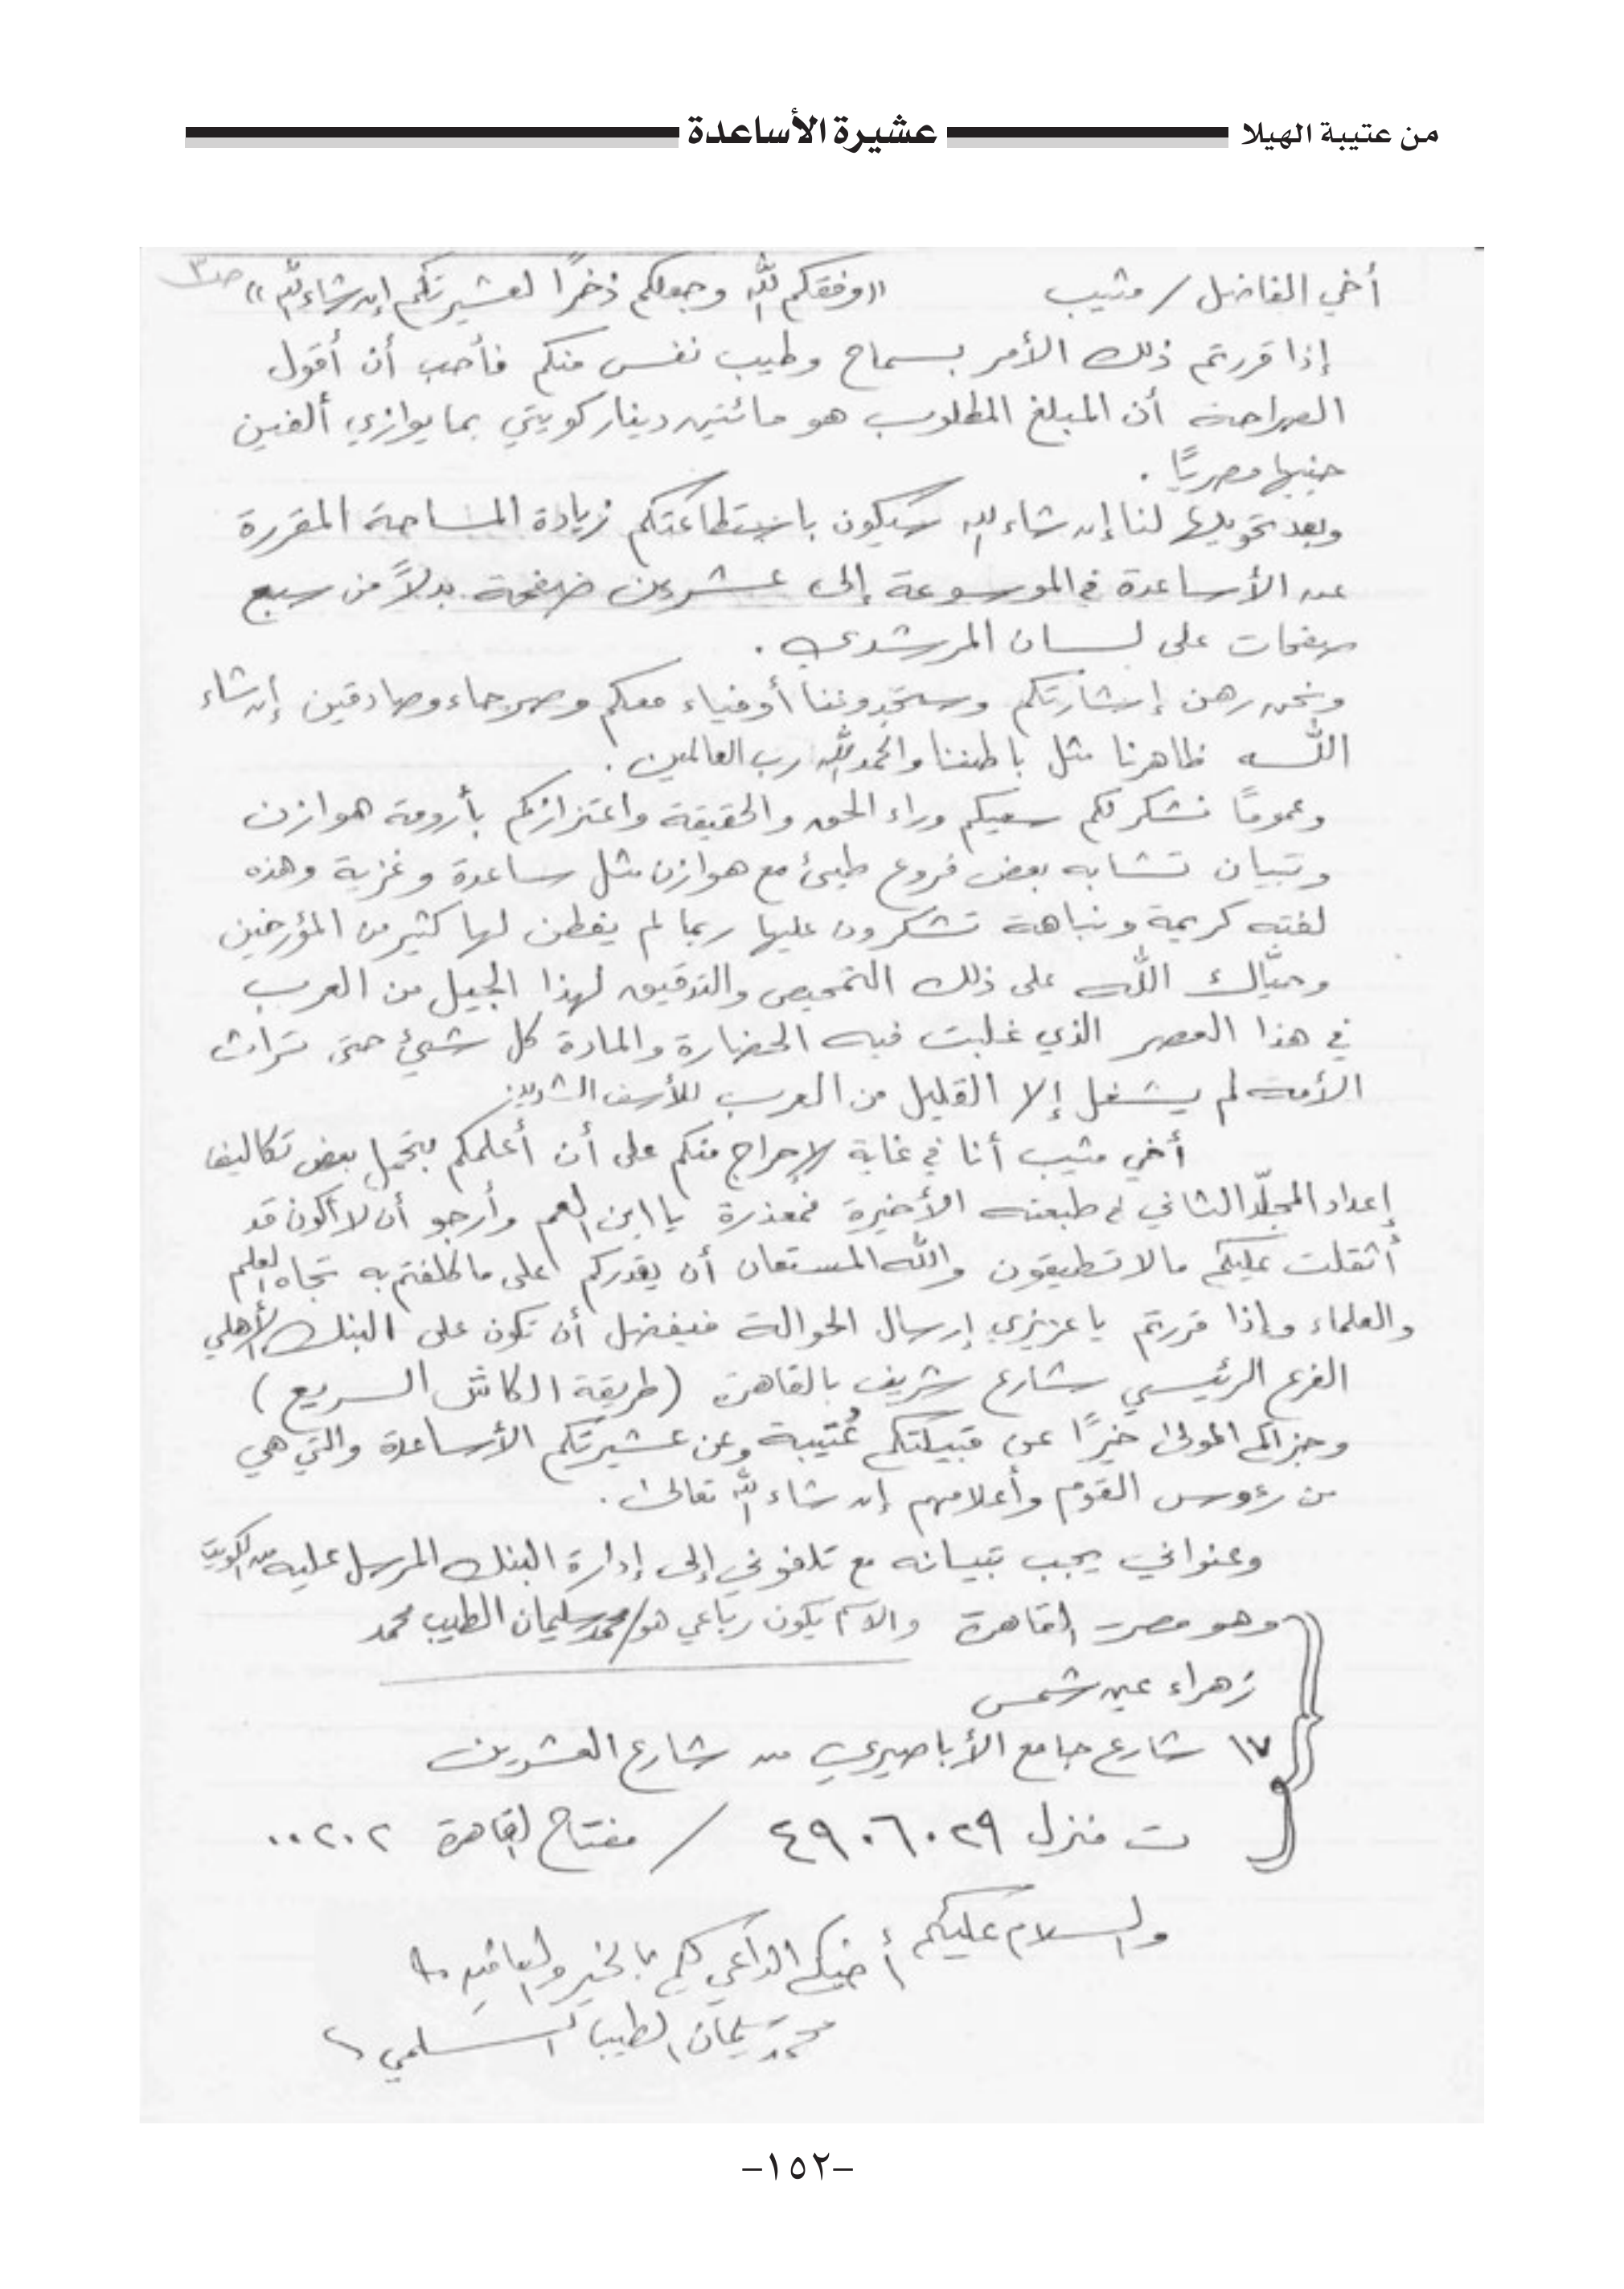 من عتيبة الهيلا عشيرة الأساعدة
أخي الفاضل / مثيب «وفقكم الله وجعلكم ذخرًا لعشيرتكم إن شاء الله» صـ٣
إذا قررتم ذلك الأمر بسماح وطيب نفس منكم فأحب أن أقول
الصراحة أن المبلغ المطلوب هو مائتين دينار كويتي بما يوازي ألفين
جنيها مصريًا .
وبعد تحويلها لنا إن شاء الله سيكون باستطاعتكم زيادة المساحة المقررة
عن الأساعدة في الموسوعة إلى عشرين صفحة بدلاً من سبع
صفحات على لسان المرشدي .
ونحن رهن إشارتكم وستجدوننا أوفياء معكم وصرحاء وصادقين إن شاء
الله ظاهرنا مثل باطننا والحمد لله رب العالمين .
وعمومًا نشكر لكم سعيكم وراء الحق والحقيقة واعتزازكم بأرومة هوازن
وتبيان تشابه بعض فروع طيئ مع هوازن مثل ساعدة وغزية وهذه
لفته كريمة ونباهة تشكرون عليها ربما لم يفطن لها كثير من المؤرخين
وحيّاك الله على ذلك التمحيص والتدقيق لهذا الجيل من العرب
في هذا العصر الذي غلبت فيه الحضارة والمادة كل شيئ حتى تراث
الأمة لم يشغل إلا القليل من العرب للأسف الشديد
أخي مثيب أنا في غاية الإحراج منكم على أن أعلمكم بتحمل بعض تكاليف
إعداد المجلّد الثاني في طبعته الأخيرة فمعذرة يا ابن العم وأرجو أن لا أكون قد
أثقلت عليكم مالا تطيقون والله المستعان أن يقدركم على ما كلفتم به تجاه العلم
والعلماء وإذا قررتم يا عزيزي إرسال الحوالة فيفضل أن تكون على البنك الأهلي
الفرع الرئيسي شارع شريف بالقاهرة (طريقة الكاش السريع)
وجزاكم المولى خيرًا عن قبيلتكم عُتيبة وعن عشيرتكم الأساعدة والتي هي
من رءوس القوم وأعلامهم إن شاء الله تعالى .
وعنواني يجب تبيانه مع تلفوني إلى إدارة البنك المرسل عليه من الكويت
وهو مصر القاهرة والاسم يكون رباعي هو/محمد سليمان الطيب محمد
زهراء عين شمس
١٧ شارع جامع الأباصيري من شارع العشرين
ت منزل ٤٩٠٦٠٢٩ / مفتاح القاهرة ٠٠٢٠٢
والسلام عليكم
أخيكم الداعي لكم بالخير والعافية
محمد سليمان الطيب السلمي
-١٥٢-